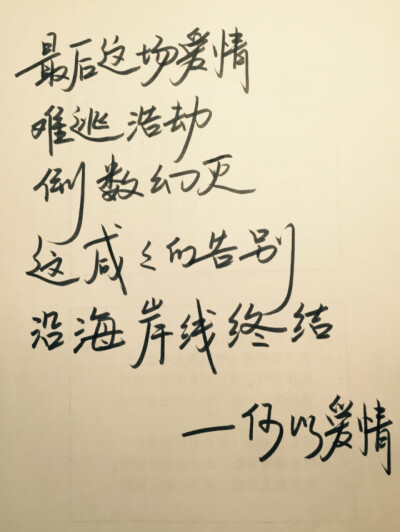 最后这场爱情
难逃浩劫
倒数幻灭
这咸々的告别
沿海岸线终结
—何以爱情